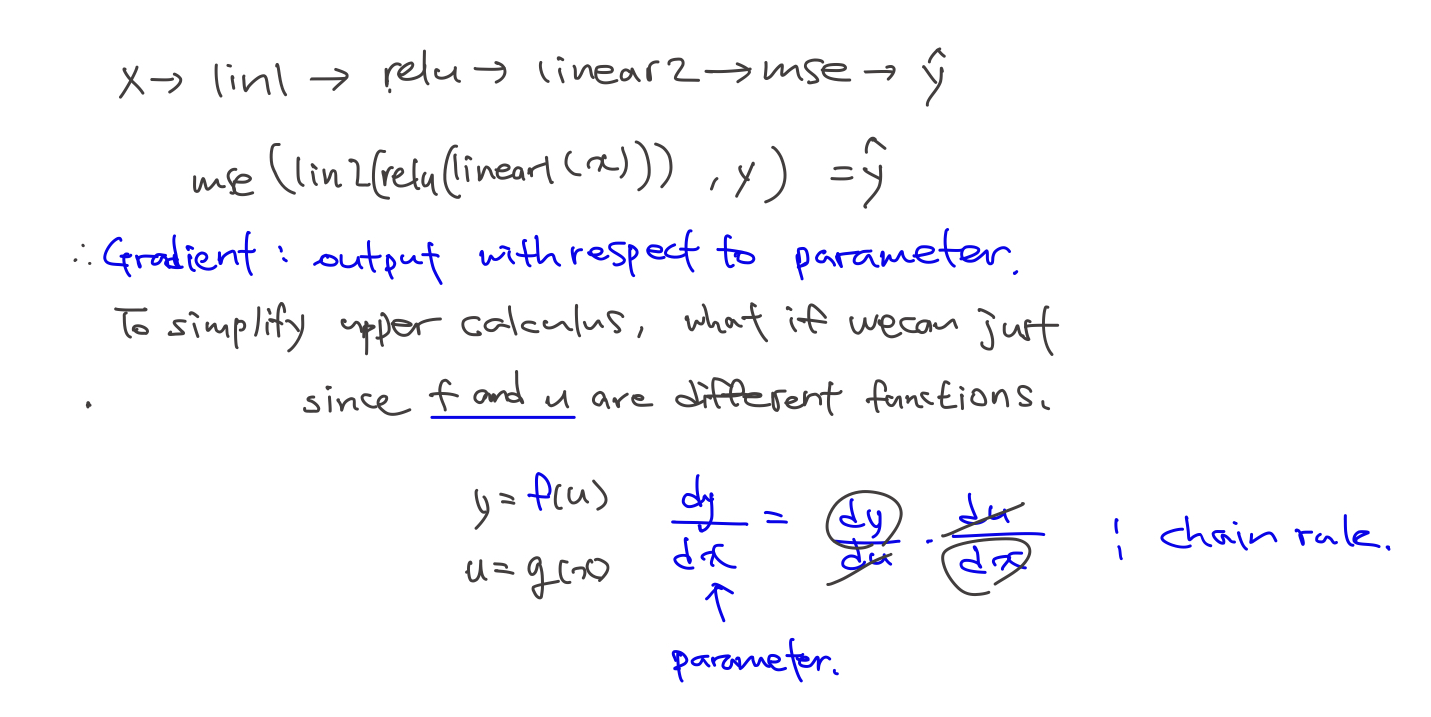 x → lin1 → relu → linear2 → mse → ŷ
mse (lin2(relu(linear1(x))) , y) = ŷ
∴ Gradient : output with respect to parameter.
To simplify upper calculus, what if we can just
. since f and u are different functions.
y = f(u) dy/dx = dy/du · du/dx ; chain rule.
u = g(x)
↑
parameter.